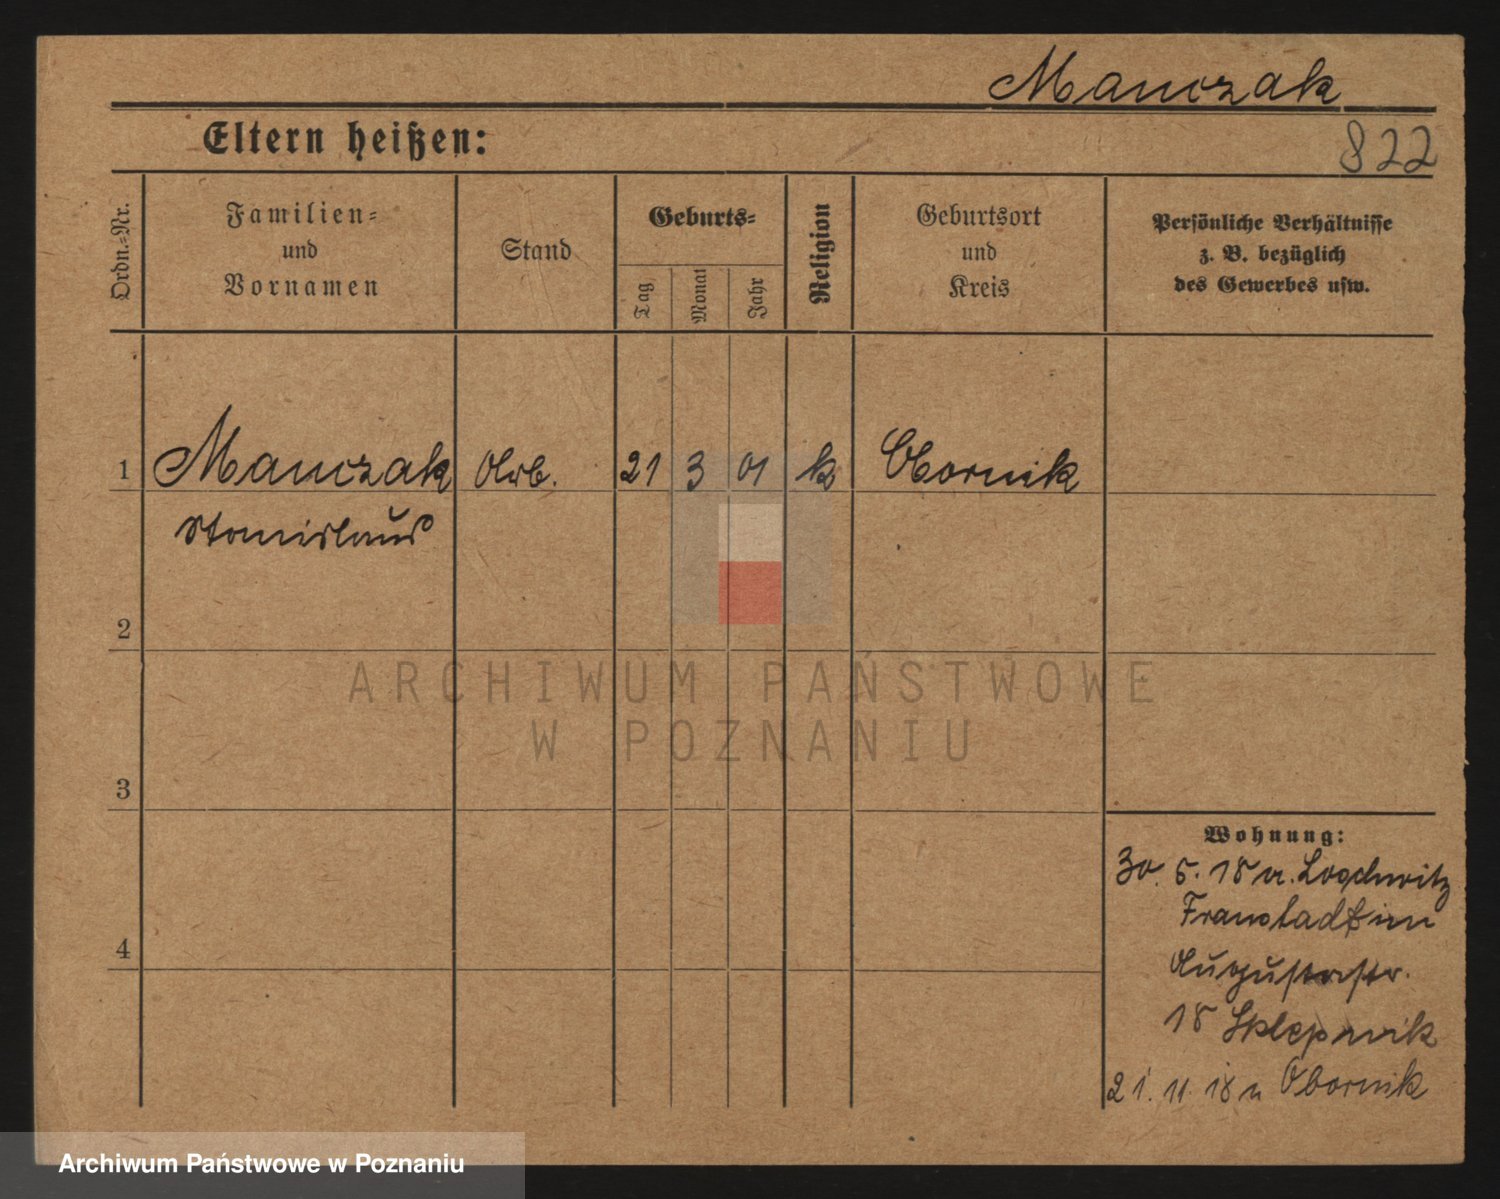 Manczak
Eltern heißen:
822
Ordn.-Nr.
Familien-
und
Vornamen
Stand
Geburts-
Tag
Monat
Jahr
Religion
Geburtsort
und
Kreis
Persönliche Verhältnisse
z. B. bezüglich
des Gewerbes usw.
1
Manczak
Arb.
21
3
01
k
Obornik
Stanislaus
2
3
4
Wohnung:
30. 5. 18 a. Lo
Fraustadt in
Augustastr.
18
21. 11. 18 n Obornik
ARCHIWUM PAŃSTWOWE
W POZNANIU
Archiwum Państwowe w Poznaniu